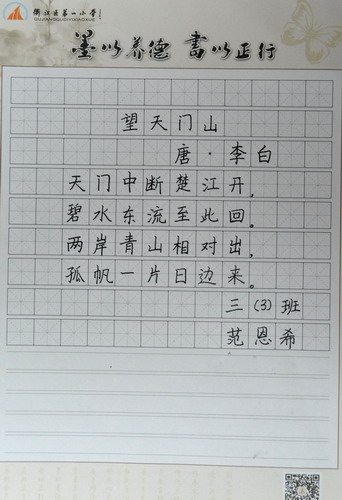 衢江区第一小学
QUJIANGQUDIYIXIAOXUE
墨以养德 書以正行
望天门山
唐·李白
天门中断楚江丹,
碧水东流至此回。
两岸青山相对出,
孤帆一片日边来。
三(3)班
范恩希